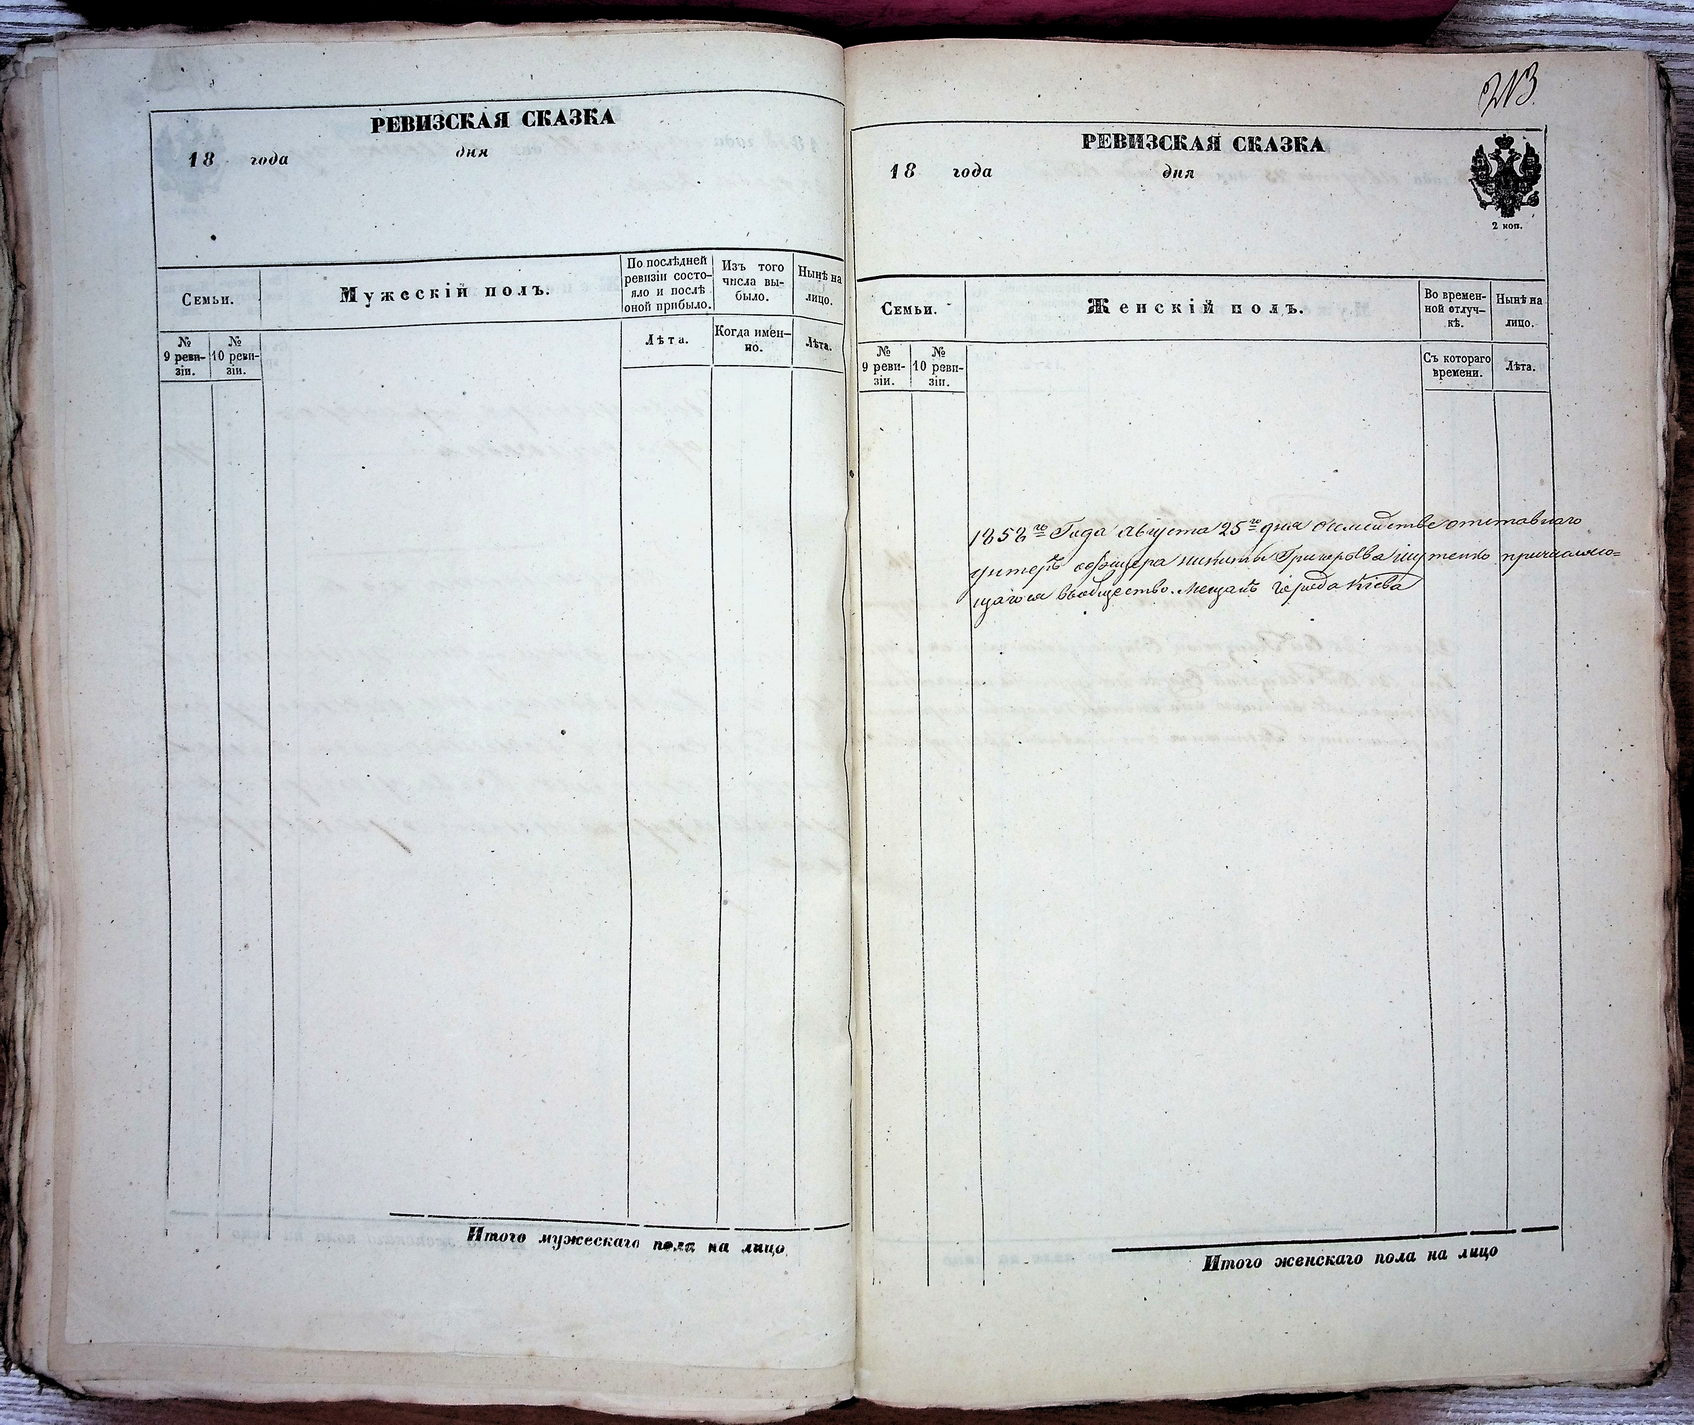 РЕВИЗСКАЯ СКАЗКА
18 года дня
Семьи.
Мужескій полъ.
По послѣдней ревизіи состояло и послѣ оной прибыло.
Изъ того числа выбыло.
Нынѣ на лицо.
№ 9 ревизіи.
№ 10 ревизіи.
Лѣта.
Когда именно.
Лѣта.
Итого мужескаго пола на лицо
213
РЕВИЗСКАЯ СКАЗКА
18 года дня
2 коп.
Семьи.
Женскій полъ.
Во временной отлучкѣ.
Нынѣ на лицо.
№ 9 ревизіи.
№ 10 ревизіи.
Съ котораго времени.
Лѣта.
1858го Года Августа 25го дня осемействе отставнаго
унтеръ офицера Никиты Григорьева причисляю=
щагося вообщество Мещанъ Города Кіева
Итого женскаго пола на лицо